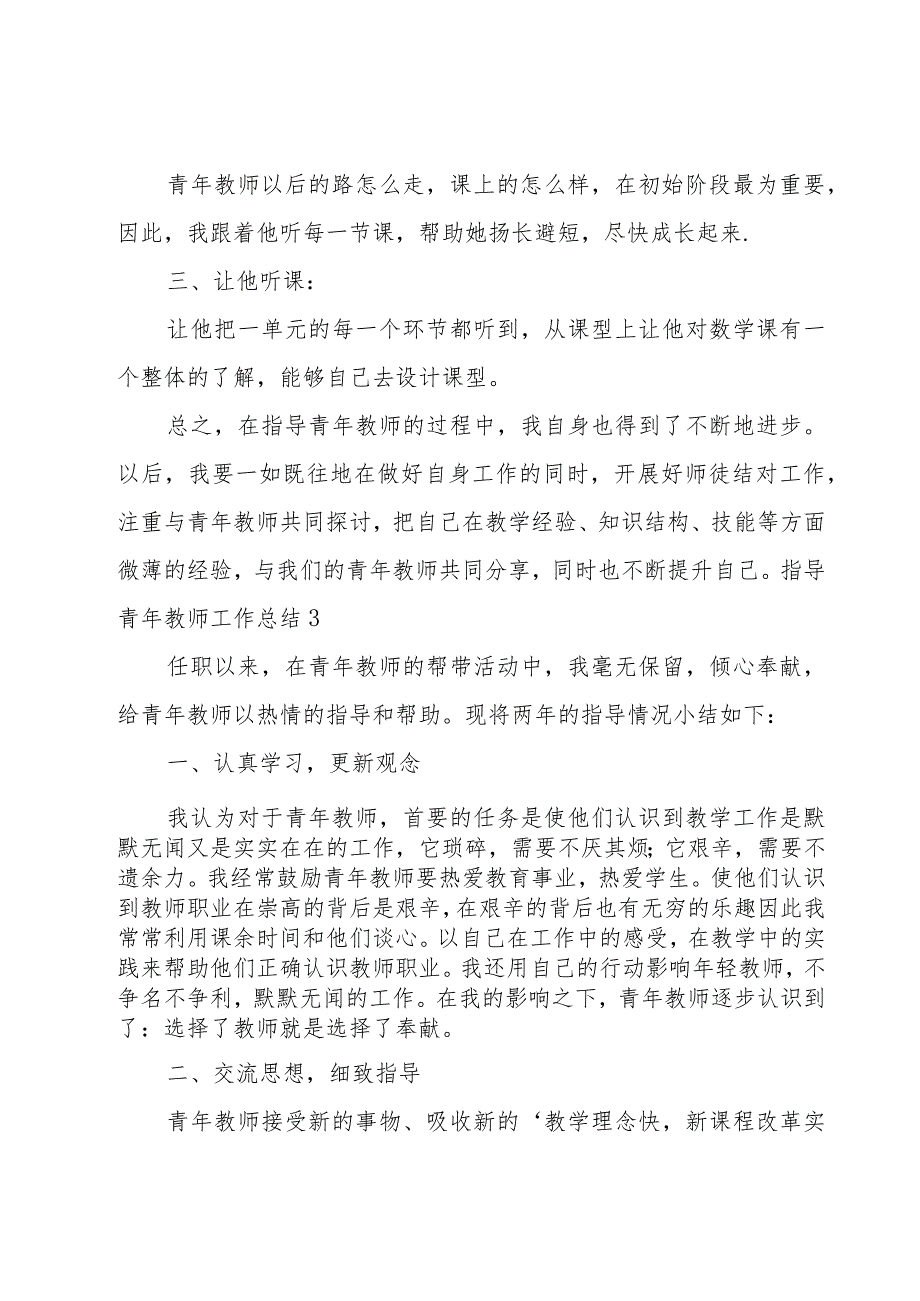 青年教师以后的路怎么走，课上的怎么样，在初始阶段最为重要，
因此，我跟着他听每一节课，帮助她扬长避短，尽快成长起来.
三、让他听课：
让他把一单元的每一个环节都听到，从课型上让他对数学课有一
个整体的了解，能够自己去设计课型。
总之，在指导青年教师的过程中，我自身也得到了不断地进步。
以后，我要一如既往地在做好自身工作的同时，开展好师徒结对工作，
注重与青年教师共同探讨，把自己在教学经验、知识结构、技能等方面
微薄的经验，与我们的青年教师共同分享，同时也不断提升自己。指导
青年教师工作总结3
任职以来，在青年教师的帮带活动中，我毫无保留，倾心奉献，
给青年教师以热情的指导和帮助。现将两年的指导情况小结如下：
一、认真学习，更新观念
我认为对于青年教师，首要的任务是使他们认识到教学工作是默
默无闻又是实实在在的工作，它琐碎，需要不厌其烦；它艰辛，需要不
遗余力。我经常鼓励青年教师要热爱教育事业，热爱学生。使他们认识
到教师职业在崇高的背后是艰辛，在艰辛的背后也有无穷的乐趣因此我
常常利用课余时间和他们谈心。以自己在工作中的感受，在教学中的实
践来帮助他们正确认识教师职业。我还用自己的行动影响年轻教师，不
争名不争利，默默无闻的工作。在我的影响之下，青年教师逐步认识到
了：选择了教师就是选择了奉献。
二、交流思想，细致指导
青年教师接受新的事物、吸收新的‘教学理念快，新课程改革实